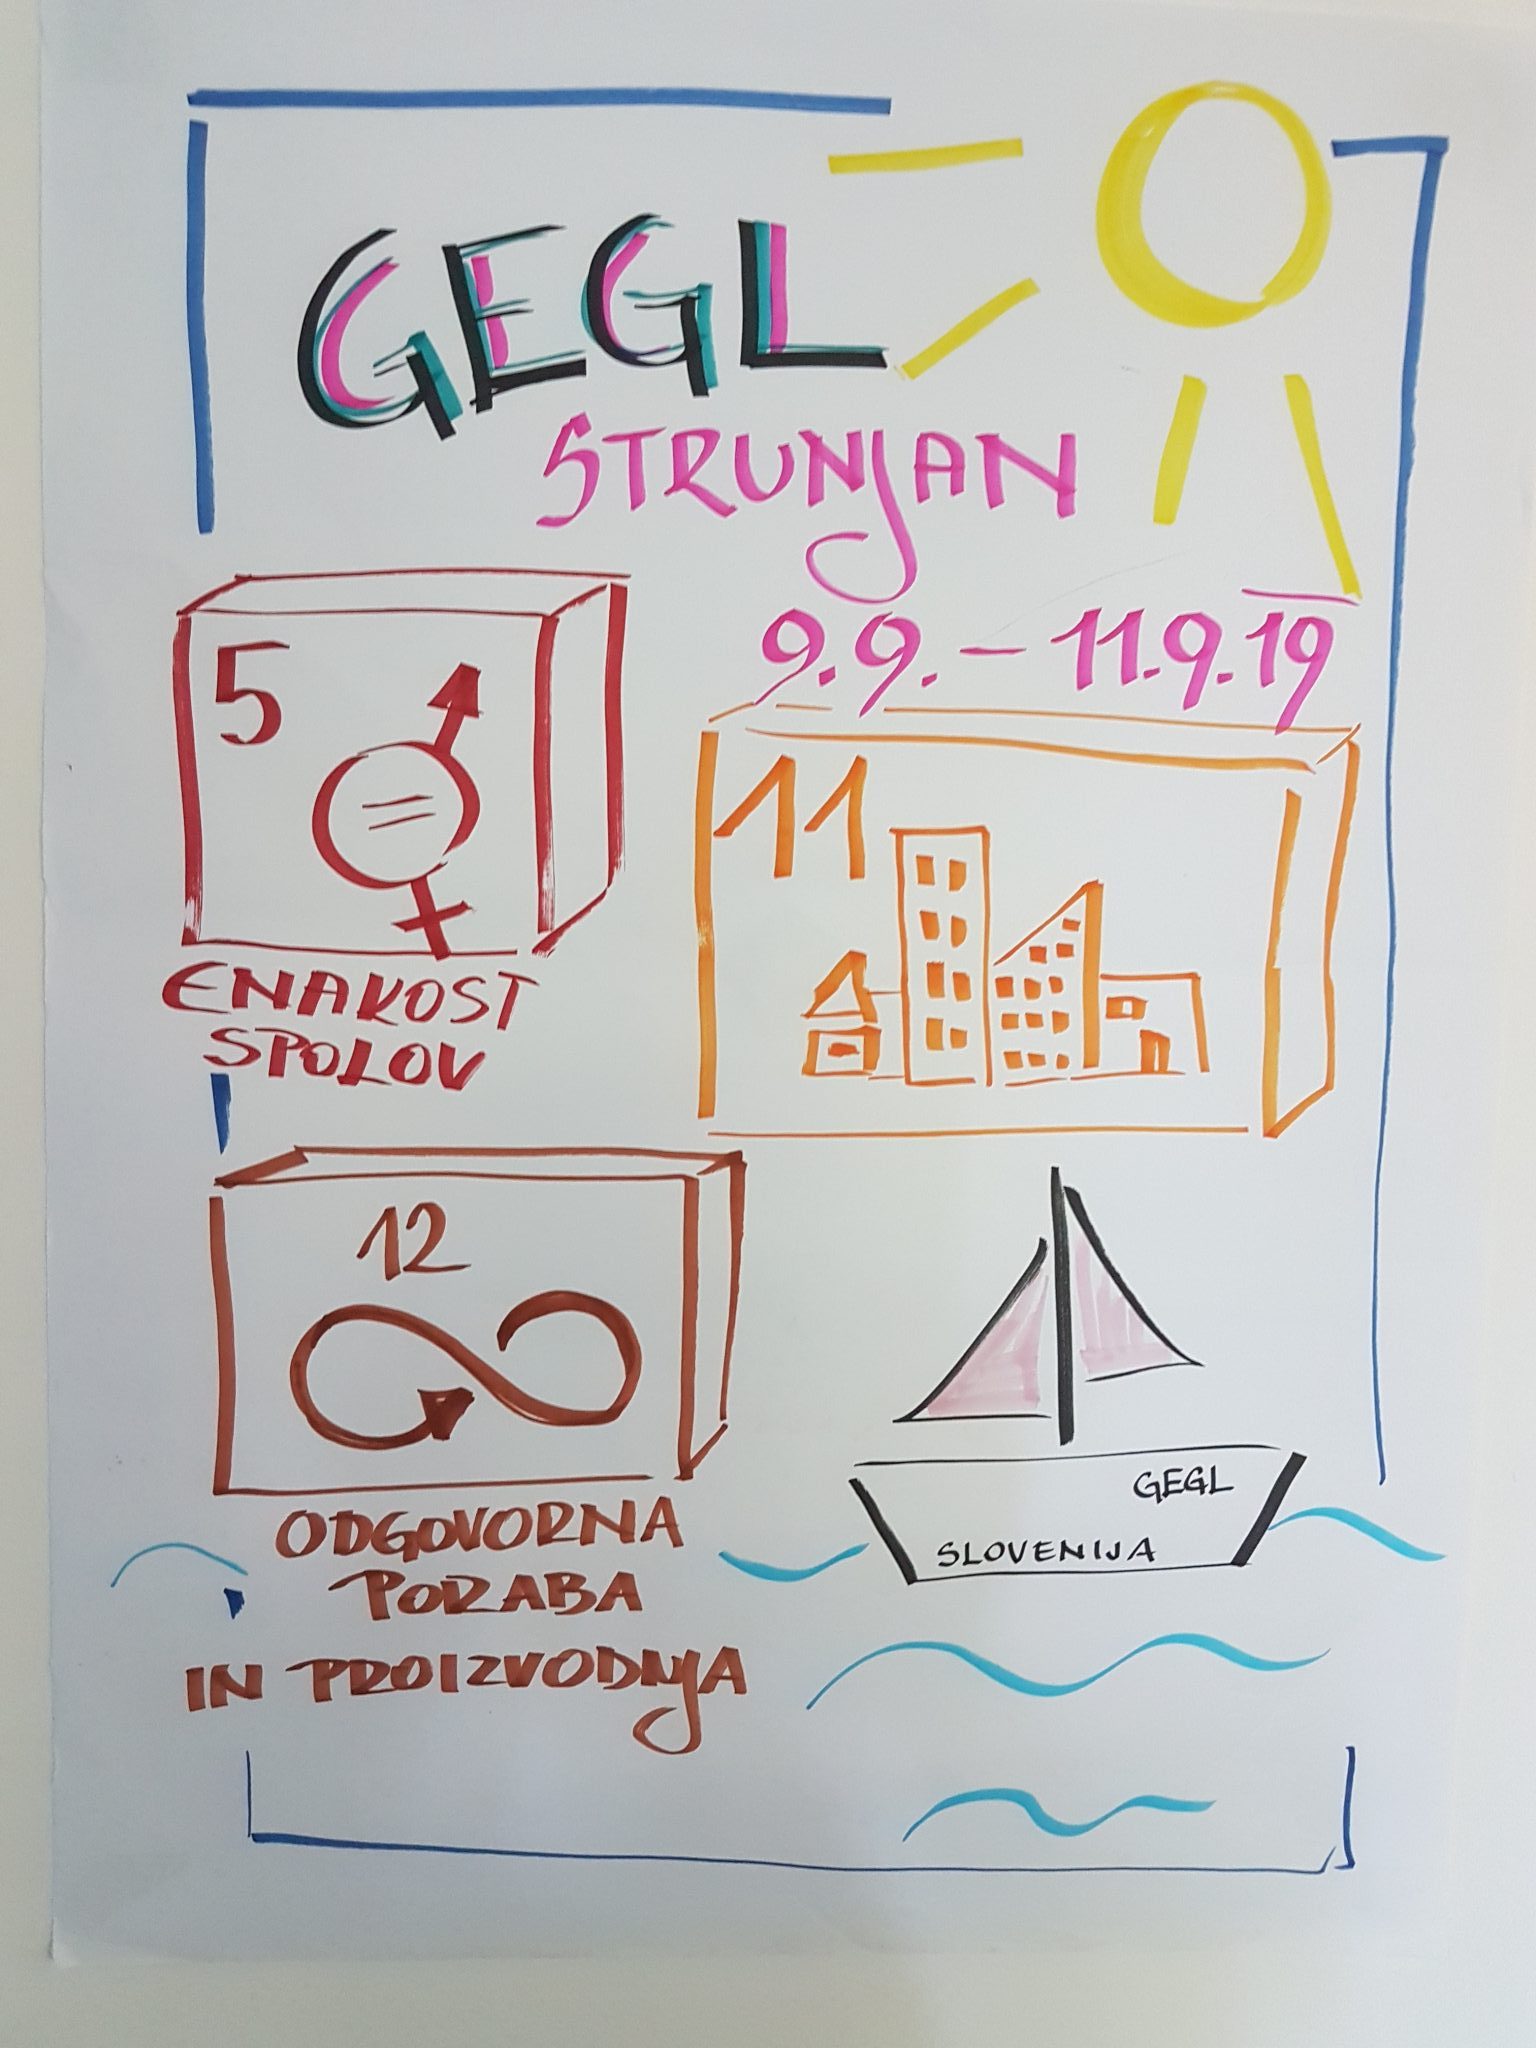 GEGL
STRUNJAN
9.9. – 11.9.19
5
ENAKOST
SPOLOV
11
12
ODGOVORNA
PORABA
IN PROIZVODNJA
GEGL
SLOVENIJA